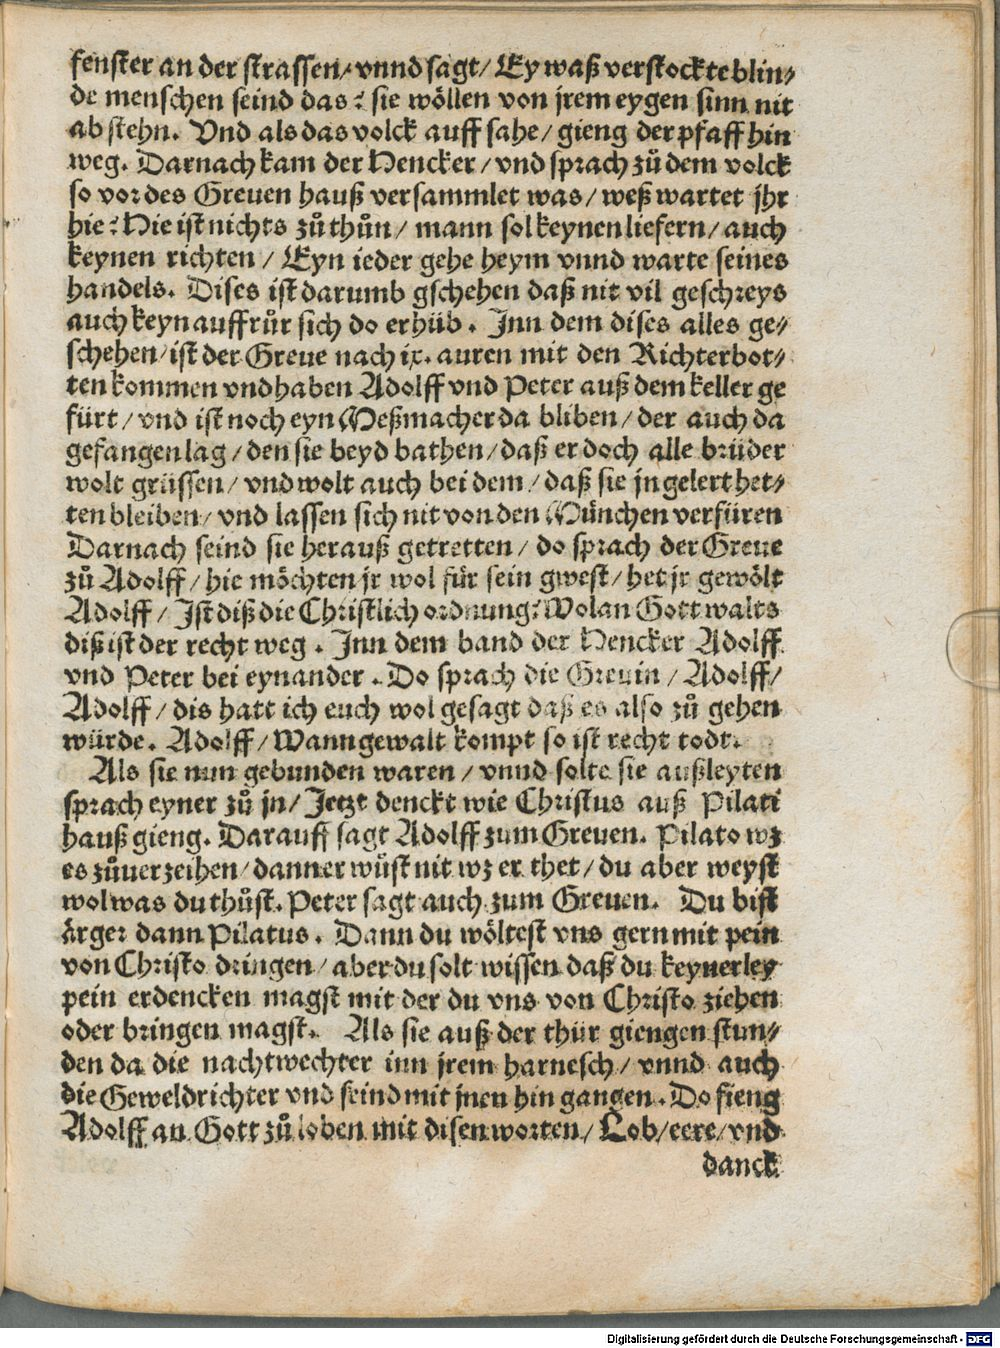 fenster an der strassen / vnnd sagt / Ey waß verstockte blin⸗
de menschen seind das? sie wöllen von jrem eygen sinn nit
ab stehn. Vnd als das volck auff sahe / gieng der pfaff hin
weg. Darnach kam der Hencker / vnd sprach zů dem volck
so vor des Greuen hauß versammlet was / weß wartet jhr
hie? Hie ist nichts zů thůn / mann sol keynen liefern / auch
keynen richten / Eyn ieder gehe heym vnnd warte seines
handels. Dises ist darumb gschehen daß nit vil geschreys
auch keyn auffrůr sich do erhüb. Jnn dem dises alles ge⸗
schehen / ist der Greue nach ix. auren mit den Richterbot⸗
ten kommen vnd haben Adolff vnd Peter auß dem keller ge
fürt / vnd ist noch eyn Meßmacher da bliben / der auch da
gefangen lag / den sie beyd bathen / daß er doch alle brüder
wolt grüssen / vnd wolt auch bei dem / daß sie jn gelert het⸗
ten bleiben / vnd lassen sich nit von den München verfüren
Darnach seind sie herauß getretten / do sprach der Greue
zů Adolff / hie möchten jr wol für sein gwest / het jr gewölt
Adolff / Jst diß die Christlich ordnung? Wolan Gott walts
diß ist der recht weg. Jnn dem band der Hencker Adolff
vnd Peter bei eynander. Do sprach die Greuin / Adolff /
Adolff / dis hatt ich euch wol gesagt daß es also zů gehen
würde. Adolff / Wann gewalt kompt so ist recht todt.
Als sie nun gebunden waren / vnnd solte sie außleyten
sprach eyner zů jn / Jetzt denckt wie Christus auß Pilati
hauß gieng. Darauff sagt Adolff zum Greuen. Pilato wz
es zůuerzeihen / dann er wüst nit wz er thet / du aber weyst
wol was du thůst. Peter sagt auch zum Greuen. Du bist
ärger dann Pilatus. Dann du wöltest vns gern mit pein
von Christo dringen / aber du solt wissen daß du keynerley
pein erdencken magst mit der du vns von Christo ziehen
oder bringen magst. Als sie auß der thür giengen stun⸗
den da die nachtwechter inn jrem harnesch / vnnd auch
die Geweldrichter vnd seind mit jnen hin gangen. Do fieng
Adolff an Gott zů loben mit disen worten / Lob / eere / vnd
danck
Digitalisierung gefördert durch die Deutsche Forschungsgemeinschaft - DFG